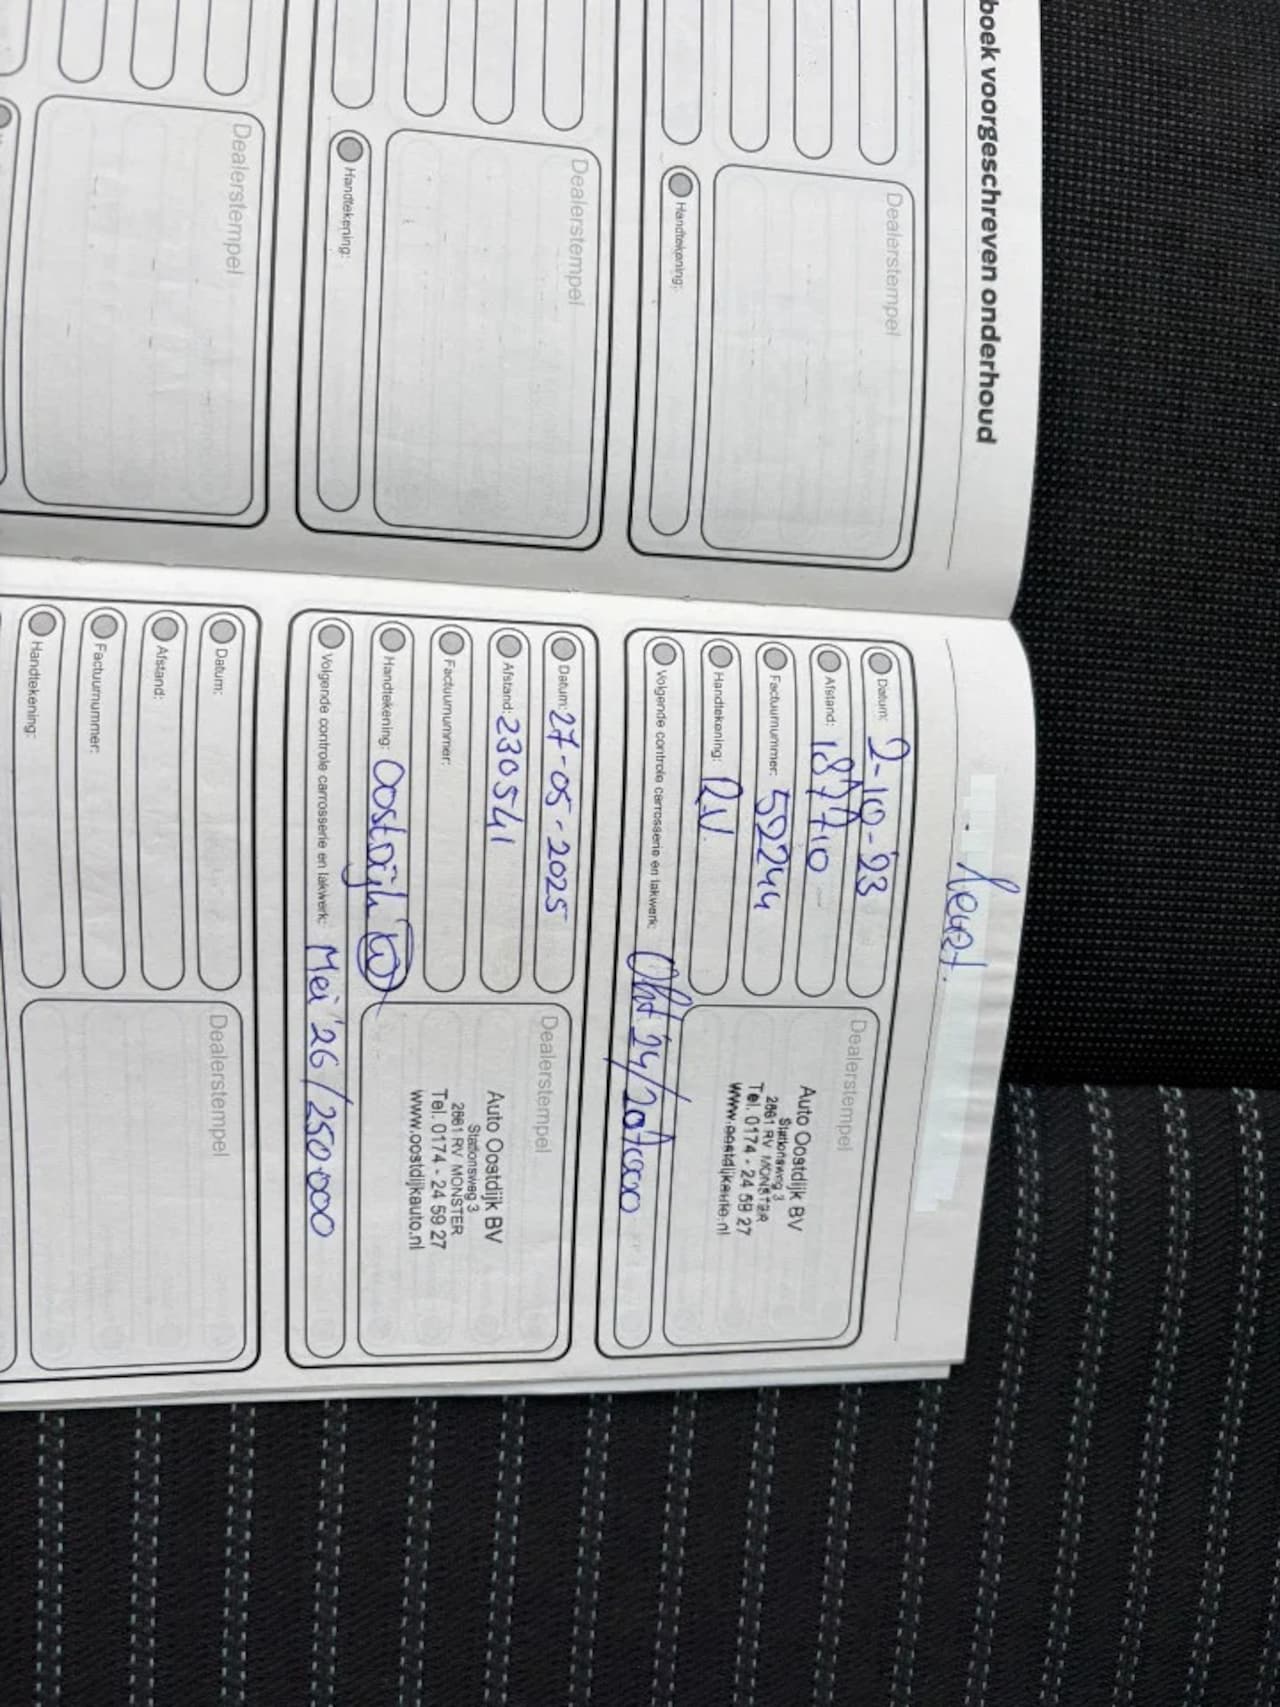 boek voorgeschreven onderhoud
Dealerstempel
Handtekening:
Dealerstempel
Handtekening:
Dealerstempel
Beurt.
Datum: 2-10-'23
Afstand: 187710
Factuurnummer: 592244
Handtekening: R.V.
Volgende controle carrosserie en lakwerk: Okt 24/207000
Dealerstempel
Auto Oostdijk BV
Stationsweg 3
2681 RV MONSTER
Tel. 0174 - 24 59 27
www.oostdijkauto.nl
Datum: 27-05-2025
Afstand: 230541
Factuurnummer:
Handtekening: Oostdijk
Volgende controle carrosserie en lakwerk: Mei '26/250000
Dealerstempel
Auto Oostdijk BV
Stationsweg 3
2681 RV MONSTER
Tel. 0174 - 24 59 27
www.oostdijkauto.nl
Datum:
Afstand:
Factuurnummer:
Handtekening:
Dealerstempel